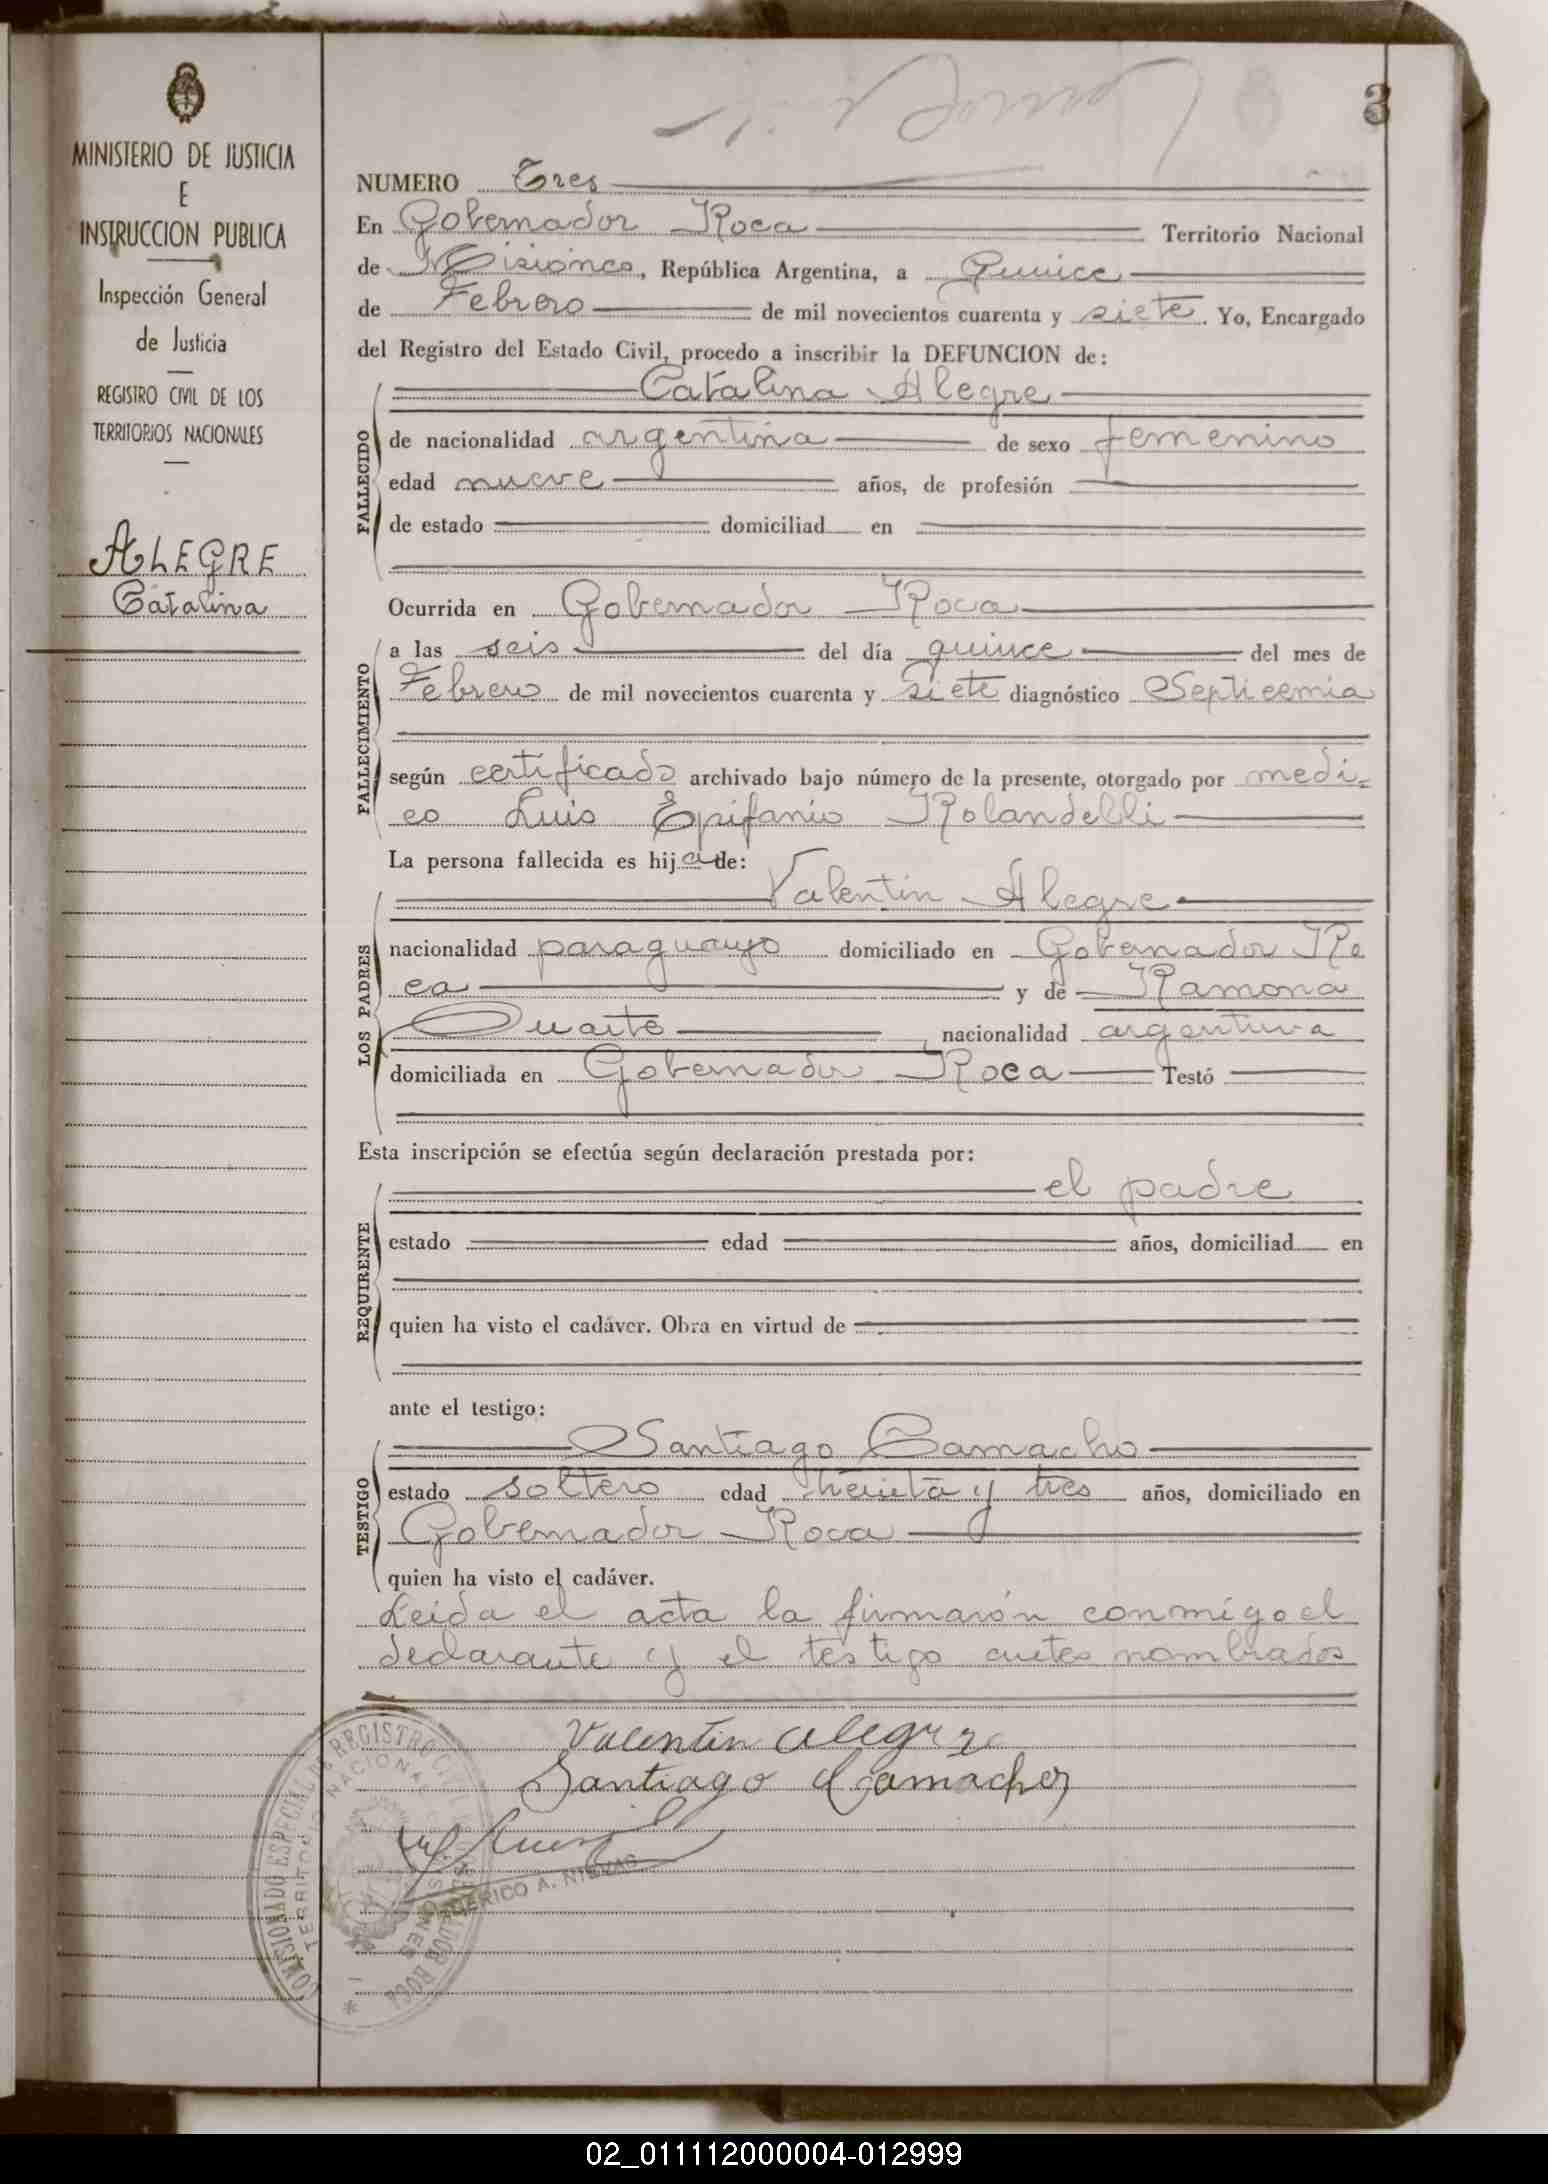 3
MINISTERIO DE JUSTICIA
E
INSTRUCCION PUBLICA
Inspección General
de Justicia
REGISTRO CIVIL DE LOS
TERRITORIOS NACIONALES
ALEGRE
Catalina
NUMERO Tres
En Gobernador Roca Territorio Nacional
de Misiones, República Argentina, a Quince
de Febrero de mil novecientos cuarenta y siete. Yo, Encargado
del Registro del Estado Civil, procedo a inscribir la DEFUNCION de:
Catalina Alegre
FALLECIDO
de nacionalidad argentina de sexo femenino
edad nueve años, de profesión
de estado domiciliad en
Ocurrida en Gobernador Roca
FALLECIMIENTO
a las seis del día quince del mes de
Febrero de mil novecientos cuarenta y siete diagnóstico Septicemia
según certificado archivado bajo número de la presente, otorgado por medi-
co Luis Epifanio Rolandelli
La persona fallecida es hija de:
LOS PADRES
Valentin Alegre
nacionalidad paraguayo domiciliado en Gobernador Ro
ca y de Ramona
Duarte nacionalidad argentina
domiciliada en Gobernador Roca Testó
Esta inscripción se efectúa según declaración prestada por:
REQUIRENTE
el padre
estado edad años, domiciliad en
quien ha visto el cadáver. Obra en virtud de
ante el testigo:
TESTIGO
Santiago Camacho
estado soltero edad treinta y tres años, domiciliado en
Gobernador Roca
quien ha visto el cadáver.
Leida el acta la firmarón conmigo el
declarante y el testigo antes nombrados
Valentin Alegre
Santiago Camacho
COMISIONADO ESPECIAL DE REGISTRO CIVIL
TERRITORIO NACIONAL MISIONES
GOBERNADOR ROCA
FEDERICO A. NIEVAS
02_011112000004-012999